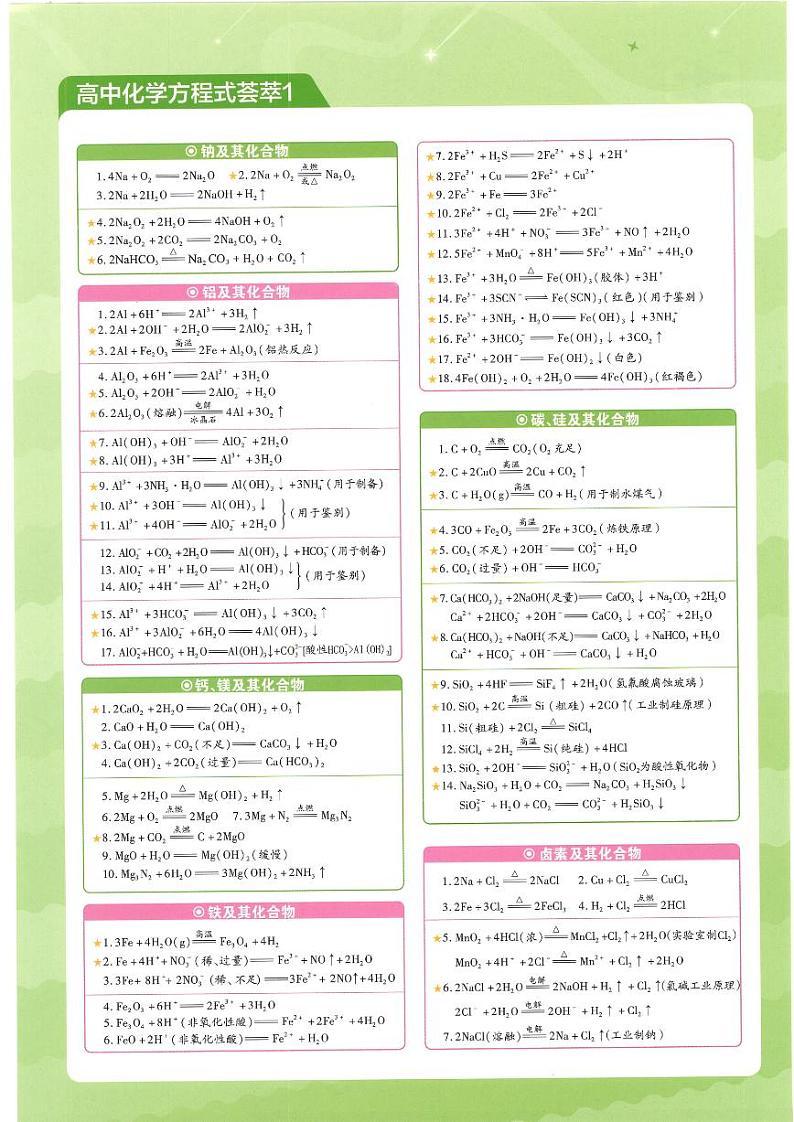 高中化学方程式荟萃1
⊙钠及其化合物
1. 4Na + O₂ ══ 2Na₂O ★2. 2Na + O₂ ══(点燃 或△) Na₂O₂
3. 2Na + 2H₂O ══ 2NaOH + H₂↑
★4. 2Na₂O₂ + 2H₂O ══ 4NaOH + O₂↑
★5. 2Na₂O₂ + 2CO₂ ══ 2Na₂CO₃ + O₂
★6. 2NaHCO₃ ══(△) Na₂CO₃ + H₂O + CO₂↑
⊙铝及其化合物
1. 2Al + 6H⁺ ══ 2Al³⁺ + 3H₂↑
★2. 2Al + 2OH⁻ + 2H₂O ══ 2AlO₂⁻ + 3H₂↑
★3. 2Al + Fe₂O₃ ══(高温) 2Fe + Al₂O₃(铝热反应)
4. Al₂O₃ + 6H⁺ ══ 2Al³⁺ + 3H₂O
★5. Al₂O₃ + 2OH⁻ ══ 2AlO₂⁻ + H₂O
★6. 2Al₂O₃(熔融) ══(电解 冰晶石) 4Al + 3O₂↑
★7. Al(OH)₃ + OH⁻ ══ AlO₂⁻ + 2H₂O
★8. Al(OH)₃ + 3H⁺ ══ Al³⁺ + 3H₂O
★9. Al³⁺ + 3NH₃·H₂O ══ Al(OH)₃↓ + 3NH₄⁺(用于制备)
★10. Al³⁺ + 3OH⁻ ══ Al(OH)₃↓
★11. Al³⁺ + 4OH⁻ ══ AlO₂⁻ + 2H₂O
(用于鉴别)
12. AlO₂⁻ + CO₂ + 2H₂O ══ Al(OH)₃↓ + HCO₃⁻(用于制备)
13. AlO₂⁻ + H⁺ + H₂O ══ Al(OH)₃↓
14. AlO₂⁻ + 4H⁺ ══ Al³⁺ + 2H₂O
(用于鉴别)
★15. Al³⁺ + 3HCO₃⁻ ══ Al(OH)₃↓ + 3CO₂↑
★16. Al³⁺ + 3AlO₂⁻ + 6H₂O ══ 4Al(OH)₃↓
17. AlO₂⁻+HCO₃⁻ + H₂O══Al(OH)₃↓+CO₃²⁻[酸性HCO₃⁻>Al(OH)₃]
⊙钙、镁及其化合物
★1. 2CaO₂ + 2H₂O ══ 2Ca(OH)₂ + O₂↑
2. CaO + H₂O ══ Ca(OH)₂
★3. Ca(OH)₂ + CO₂(不足) ══ CaCO₃↓ + H₂O
4. Ca(OH)₂ + 2CO₂(过量) ══ Ca(HCO₃)₂
5. Mg + 2H₂O ══(△) Mg(OH)₂ + H₂↑
6. 2Mg + O₂ ══(点燃) 2MgO 7. 3Mg + N₂ ══(点燃) Mg₃N₂
★8. 2Mg + CO₂ ══(点燃) C + 2MgO
9. MgO + H₂O ══ Mg(OH)₂(缓慢)
10. Mg₃N₂ + 6H₂O ══ 3Mg(OH)₂ + 2NH₃↑
⊙铁及其化合物
★1. 3Fe + 4H₂O(g) ══(高温) Fe₃O₄ + 4H₂
★2. Fe + 4H⁺ + NO₃⁻(稀、过量) ══ Fe³⁺ + NO↑ + 2H₂O
3. 3Fe + 8H⁺ + 2NO₃⁻(稀、不足) ══ 3Fe²⁺ + 2NO↑ + 4H₂O
4. Fe₂O₃ + 6H⁺ ══ 2Fe³⁺ + 3H₂O
5. Fe₃O₄ + 8H⁺(非氧化性酸) ══ Fe²⁺ + 2Fe³⁺ + 4H₂O
6. FeO + 2H⁺(非氧化性酸) ══ Fe²⁺ + H₂O
★7. 2Fe³⁺ + H₂S ══ 2Fe²⁺ + S↓ + 2H⁺
★8. 2Fe³⁺ + Cu ══ 2Fe²⁺ + Cu²⁺
★9. 2Fe³⁺ + Fe ══ 3Fe²⁺
★10. 2Fe²⁺ + Cl₂ ══ 2Fe³⁺ + 2Cl⁻
★11. 3Fe²⁺ + 4H⁺ + NO₃⁻ ══ 3Fe³⁺ + NO↑ + 2H₂O
★12. 5Fe²⁺ + MnO₄⁻ + 8H⁺ ══ 5Fe³⁺ + Mn²⁺ + 4H₂O
★13. Fe³⁺ + 3H₂O ══(△) Fe(OH)₃(胶体) + 3H⁺
★14. Fe³⁺ + 3SCN⁻ ⇌ Fe(SCN)₃(红色)(用于鉴别)
★15. Fe³⁺ + 3NH₃·H₂O ══ Fe(OH)₃↓ + 3NH₄⁺
★16. Fe³⁺ + 3HCO₃⁻ ══ Fe(OH)₃↓ + 3CO₂↑
★17. Fe²⁺ + 2OH⁻ ══ Fe(OH)₂↓(白色)
★18. 4Fe(OH)₂ + O₂ + 2H₂O ══ 4Fe(OH)₃(红褐色)
⊙碳、硅及其化合物
1. C + O₂ ══(点燃) CO₂(O₂充足)
★2. C + 2CuO ══(高温) 2Cu + CO₂↑
★3. C + H₂O(g) ══(高温) CO + H₂(用于制水煤气)
★4. 3CO + Fe₂O₃ ══(高温) 2Fe + 3CO₂(炼铁原理)
★5. CO₂(不足) + 2OH⁻ ══ CO₃²⁻ + H₂O
★6. CO₂(过量) + OH⁻ ══ HCO₃⁻
★7. Ca(HCO₃)₂ + 2NaOH(足量) ══ CaCO₃↓ + Na₂CO₃ + 2H₂O
Ca²⁺ + 2HCO₃⁻ + 2OH⁻ ══ CaCO₃↓ + CO₃²⁻ + 2H₂O
★8. Ca(HCO₃)₂ + NaOH(不足) ══ CaCO₃↓ + NaHCO₃ + H₂O
Ca²⁺ + HCO₃⁻ + OH⁻ ══ CaCO₃↓ + H₂O
★9. SiO₂ + 4HF ══ SiF₄↑ + 2H₂O(氢氟酸腐蚀玻璃)
★10. SiO₂ + 2C ══(高温) Si(粗硅) + 2CO↑(工业制硅原理)
11. Si(粗硅) + 2Cl₂ ══(△) SiCl₄
12. SiCl₄ + 2H₂ ══(高温) Si(纯硅) + 4HCl
★13. SiO₂ + 2OH⁻ ══ SiO₃²⁻ + H₂O(SiO₂为酸性氧化物)
★14. Na₂SiO₃ + H₂O + CO₂ ══ Na₂CO₃ + H₂SiO₃↓
SiO₃²⁻ + H₂O + CO₂ ══ CO₃²⁻ + H₂SiO₃↓
⊙卤素及其化合物
1. 2Na + Cl₂ ══(△) 2NaCl 2. Cu + Cl₂ ══(△) CuCl₂
3. 2Fe + 3Cl₂ ══(△) 2FeCl₃ 4. H₂ + Cl₂ ══(点燃) 2HCl
★5. MnO₂ + 4HCl(浓) ══(△) MnCl₂ + Cl₂↑ + 2H₂O(实验室制Cl₂)
MnO₂ + 4H⁺ + 2Cl⁻ ══(△) Mn²⁺ + Cl₂↑ + 2H₂O
★6. 2NaCl + 2H₂O ══(电解) 2NaOH + H₂↑ + Cl₂↑(氯碱工业原理)
2Cl⁻ + 2H₂O ══(电解) 2OH⁻ + H₂↑ + Cl₂↑
7. 2NaCl(熔融) ══(电解) 2Na + Cl₂↑(工业制钠)